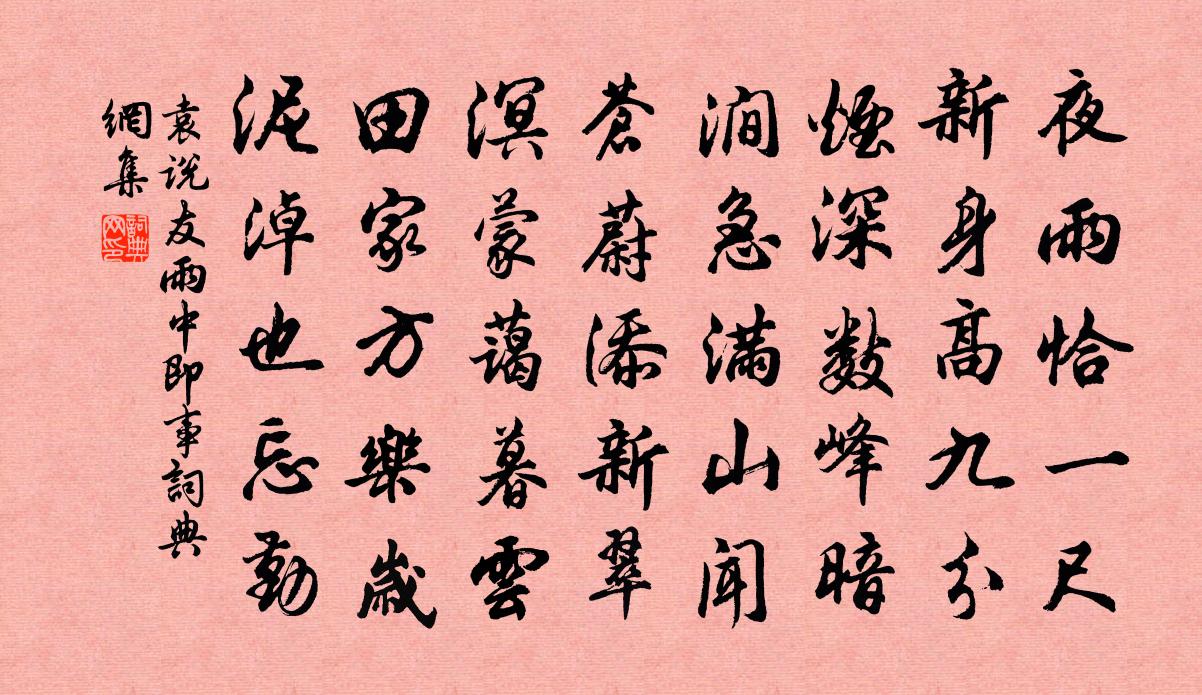 夜雨恰一尺
新身高九分
煙深數峰暗
澗急滿山聞
蒼蔚添新翠
溟蒙藹暮雲
田家方樂歲
泥淖也忘勤
袁說友雨中即事詞典
網集
詞典
网印